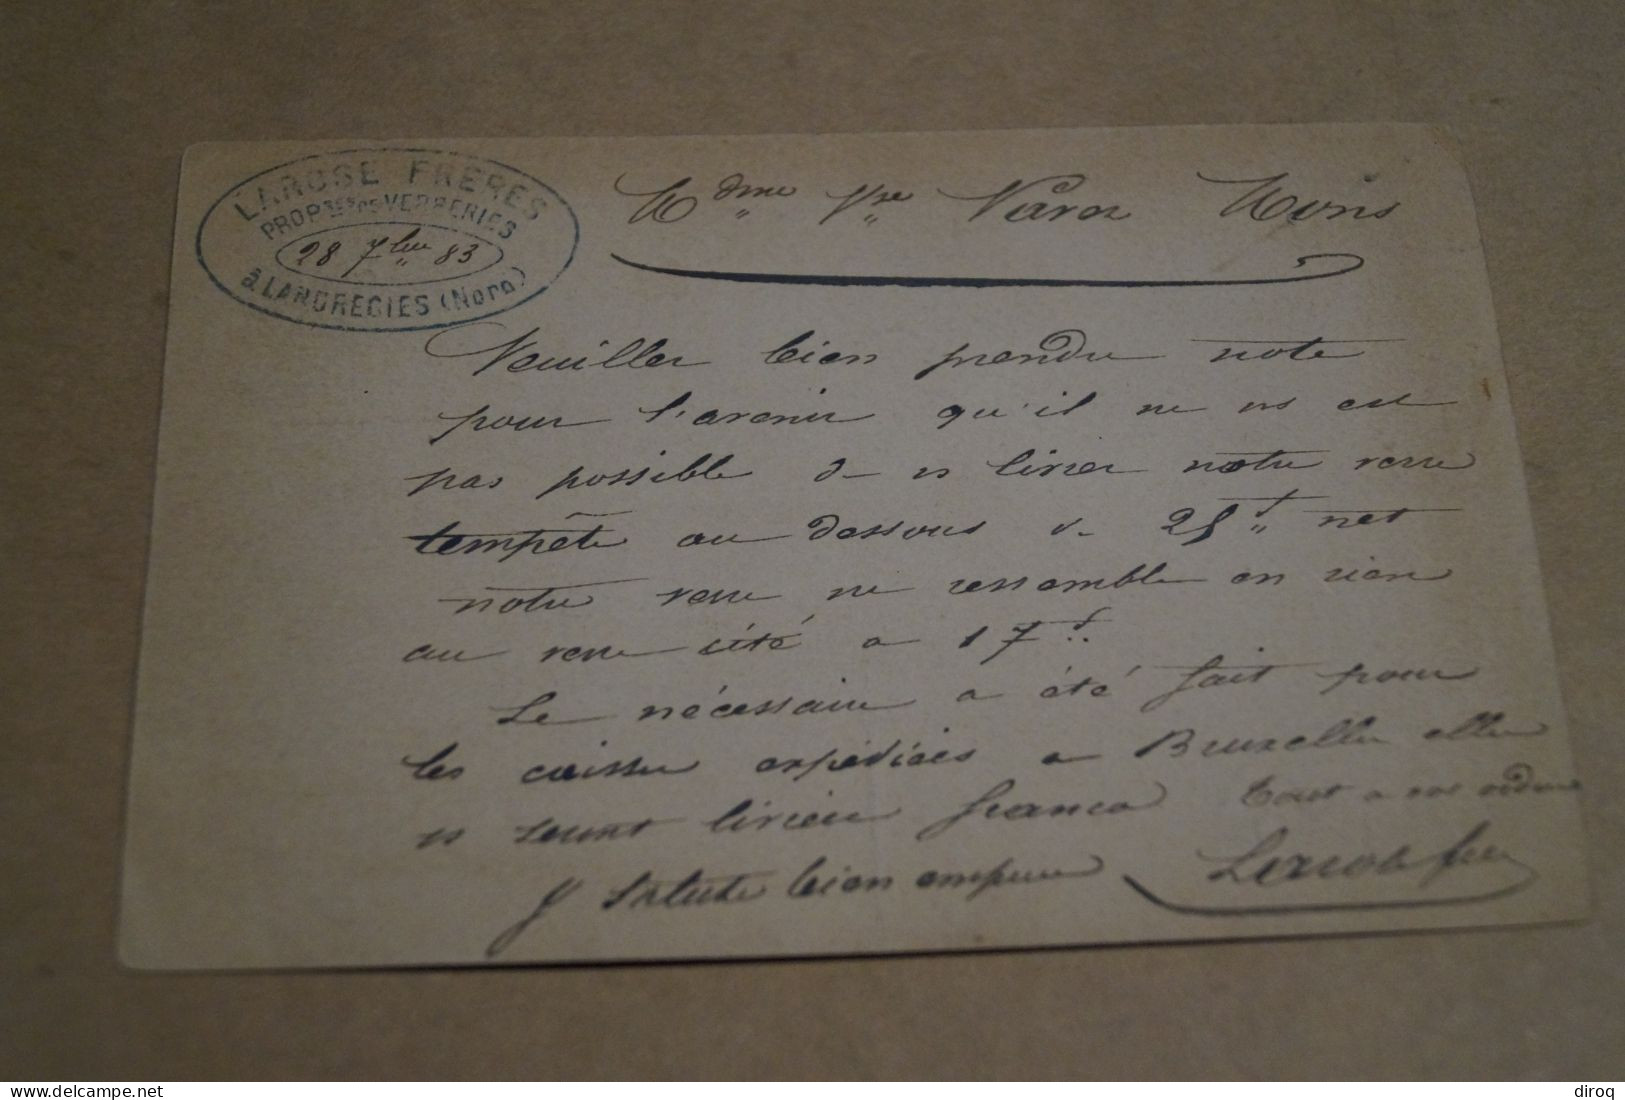 LAROSE FRÈRES
PROP^RES DE VERRERIES
28 7bre 83
à LANDRECIES (Nord)
Mdme Vve Varoz Mons
Veuillez bien prendre note
pour l'avenir qu'il ne vs est
pas possible de vs livrer notre verre
tempête au dessous de 25f net
notre verre ne ressemble en rien
au verre cité à 17f.
Le nécessaire a été fait pour
les caisses expédiées a Bruxelles elles
vs seront livrées franco Tout a vos ordres
& Salute bien empres Larose frères
delcampe.net
diroq